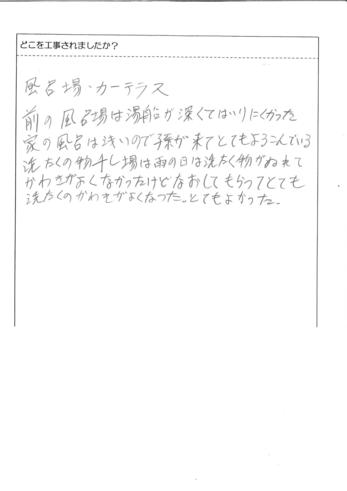 どこを工事されましたか?
風呂場・カーテラス
前の風呂場は湯船が深くてはいりにくかった
家の風呂は浅いので孫が来てとてもよろこんでいる
洗たくの物干し場は雨の日は洗たく物がぬれて
かわきがよくなかったけどなおしてもらってとても
洗たくのかわきがよくなった。とてもよかった。